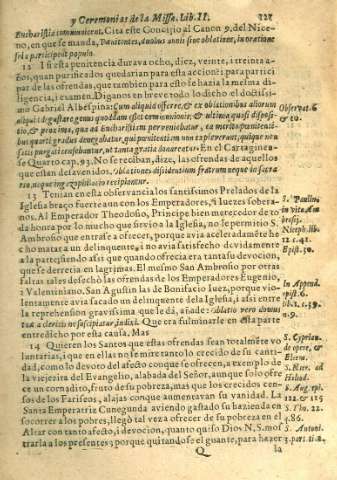 y Ceremonias de la Missa. Lib. II. 121
Eucharistia communicat. Cita este Concilio al Canon 9. del Nice-
no, en que se manda, Pœnitentes, duobus annis sine oblatione, in oratione
sola participent populo.
12 I si esta penitencia durava ocho, diez, veinte, i treinta a-
ños, quan purificados quedarian para esta accion: i para partici-
par de las ofrendas, que tambien para esto se hazia la mesma di-
ligencia, i examen. Diganos en breve todo lo dicho el doctissi-
mo Gabriel Albespina: Cum aliquid offerre, & ex oblationibus aliorum
aliquid degustare genus quoddam esset communionis, & ultima quasi disposi-
tio, & proxima, qua ad Eucharistiam perveniebatur, ea merito pœnitenti-
bus quarti gradus denegabatur, qui pœnitentium non expleverant, quique non
satis purgati censebantur, ut tanta gratia donarentur. En el Cartaginen-
se Quarto cap. 93. No se reciban, dize, las ofrendas de aquellos
que estan desavenidos. Oblationes dissidentium fratrum neque in sacra
rio, neque in gazophilacio recipiantur.
Observat. 6
& 20.
13 Tenian en esta observancia los santissimos Prelados de la
Iglesia braço fuerte aun con los Emperadores, i Iuezes sobera-
nos. Al Emperador Theodosio, Principe bien merecedor de to
da honra por lo mucho que sirvio a la Iglesia, no le permitio S.
Ambrosio que entrasse a ofrecer, porque avia aceleradamẽte he
cho matar a un delinquente, i no avia satisfecho devidamente
a la parte, siendo assi que quando ofrecia era tanta su devocion,
que se derretia en lagrimas. El mismo San Ambrosio por otras
faltas tales desecho las ofrendas de los Emperadores Eugenio,
i Valentiniano. San Agustin las de Bonifacio Iuez, porque vio-
lentamente avia sacado un delinquente de la Iglesia, i assi entre
la reprehension gravissima que le dà, añade: Oblatio vero domus
tua a clericis ne suscipiatur, indixi. Que era fulminarle en esta parte
entredicho por esta causa. Mas
S. Paulin.
in vita Am
brosij.
Niceph. lib.
12. c. 41.
Epist. 30.
In Append.
epist. 6.
n. 9.
14 Quieren los Santos que estas ofrendas sean totalmẽte vo
luntarias, i que en ellas no se mire tanto lo crecido de su canti-
dad, como lo devoto del afecto con que se ofrecen, a exemplo de
la viejesita del Evangelio, alabada del Señor, aunque solo ofre
ce un cornadito, fruto de su pobreza, mas que los crecidos cen-
sos de los Fariseos, alajas con que aumentavan su vanidad. La
Santa Emperatriz Cunegunda aviendo gastado su hazienda en
socorrer a los pobres, llegò tal vez a ofrecer de su pobreza en el
Altar con tanto afecto, i devocion, quanto quiso Dios N. S. mos
trarla a los presentes; porque quitandose el guante, para hazer
S. Cyprian.
de opere, &
Eleem.
S. Hier. ad
S. Aug. epi.
122. & 125
S. Tho. 22.
q. 86.
S. Antoni.
3. par. ti. 2.
Q la